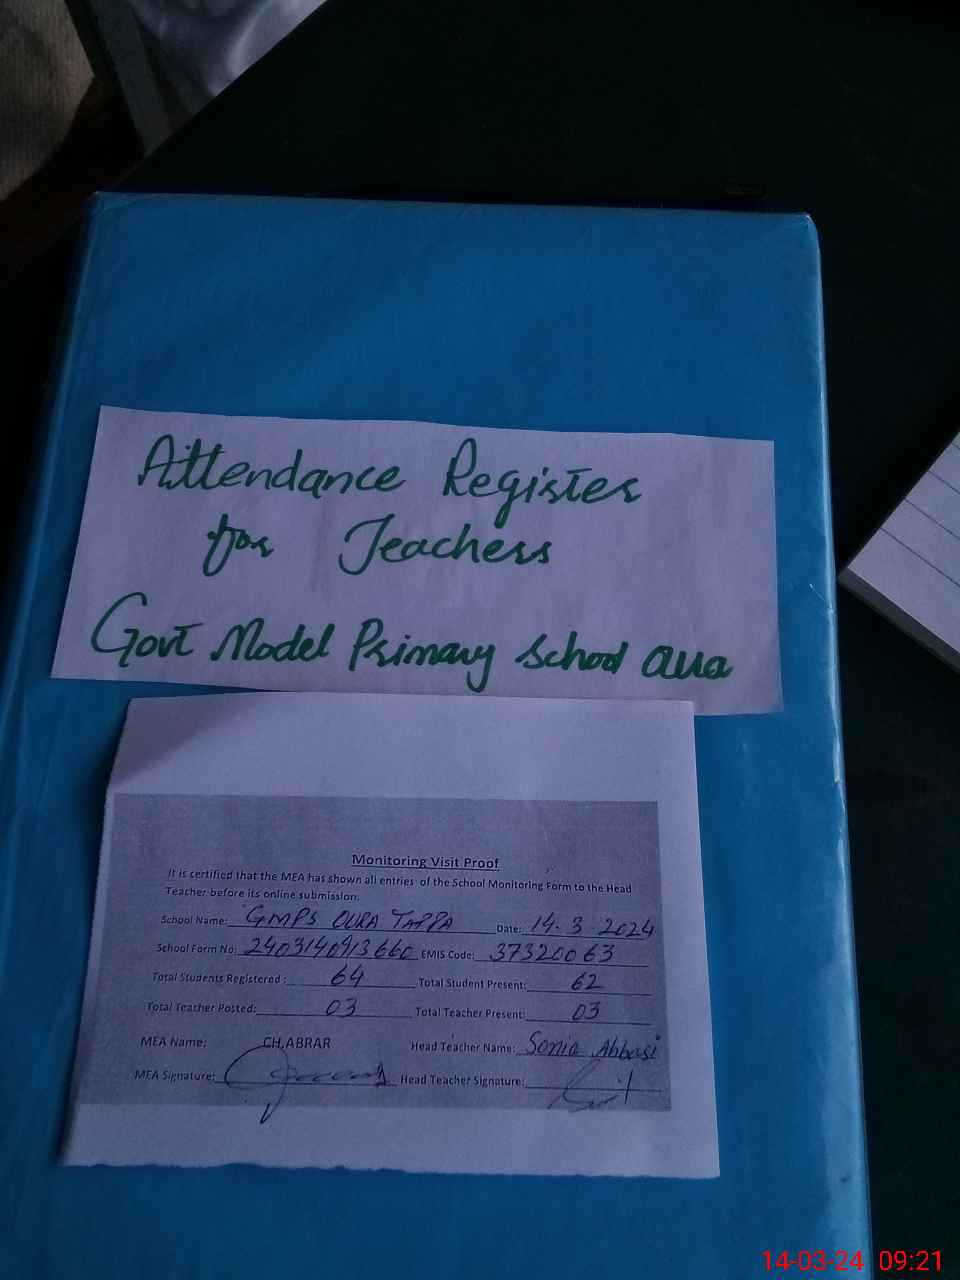 Attendance Register
for Teachers
Govt Model Primary School aura
Monitoring Visit Proof
It is certified that the MEA has shown all entries of the School Monitoring Form to the Head
Teacher before its online submission.
School Name: GMPS OURA TAPPA Date: 14.3 2024
School Form No: 2403140913660 EMIS Code: 37320063
Total Students Registered : 64 Total Student Present: 62
Total Teacher Posted: 03 Total Teacher Present: 03
MEA Name: CH,ABRAR Head Teacher Name: Sonia Abbasi
MEA Signature: Head Teacher Signature:
14-03-24 09:21